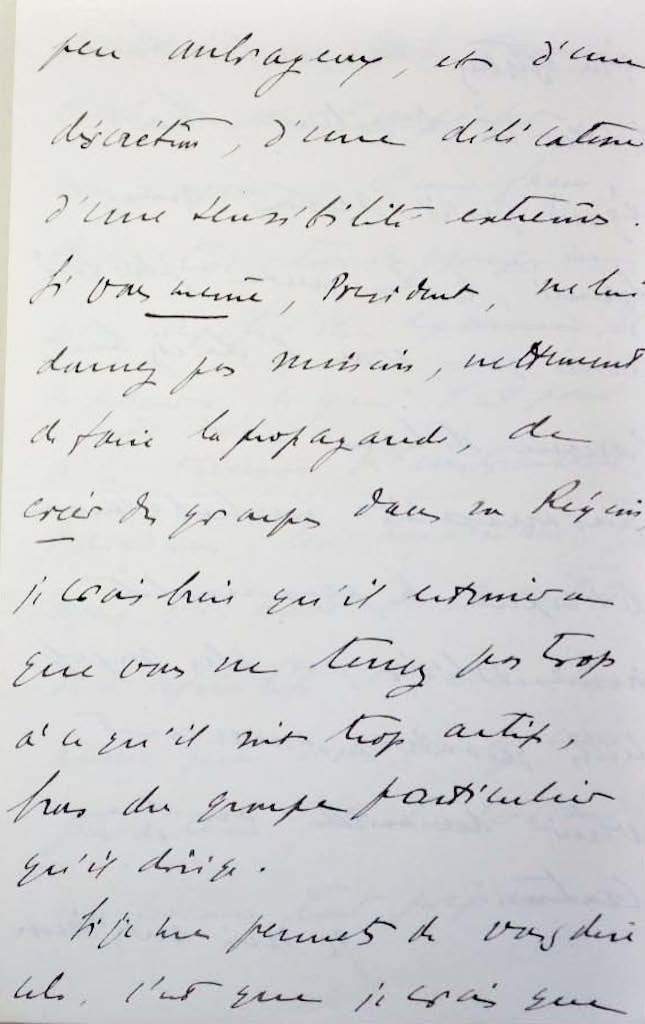 peu ombrageux, et d'une
discrétion, d'une délicatesse
d'une sensibilité extrêmes.
Si vous même, Président, ne lui
donnez pas mission, nettement
de faire la propagande, de
créer des groupes dans sa Région,
je crois bien qu'il estimera
que vous ne tenez pas trop
à ce qu'il soit trop actif,
hors du groupe particulier
qu'il dirige.
Si je me permets de vous dire
cela, c'est que je crois que